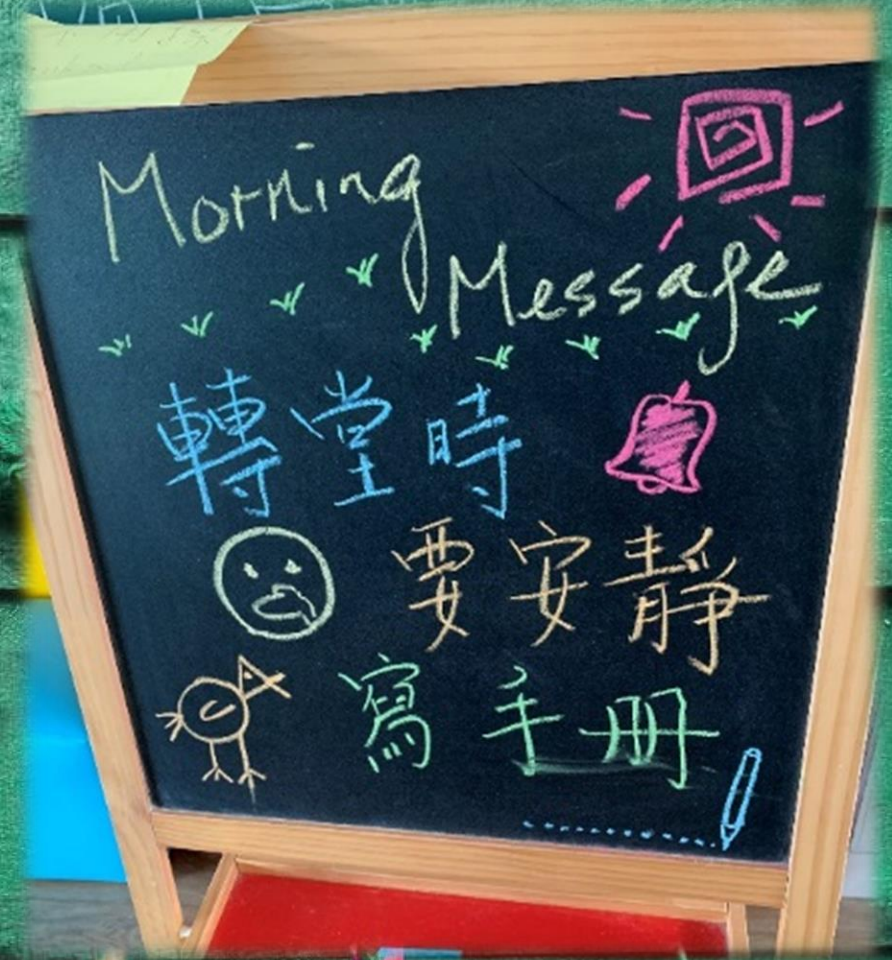 Morning
Message
轉堂時
要安靜
寫手冊